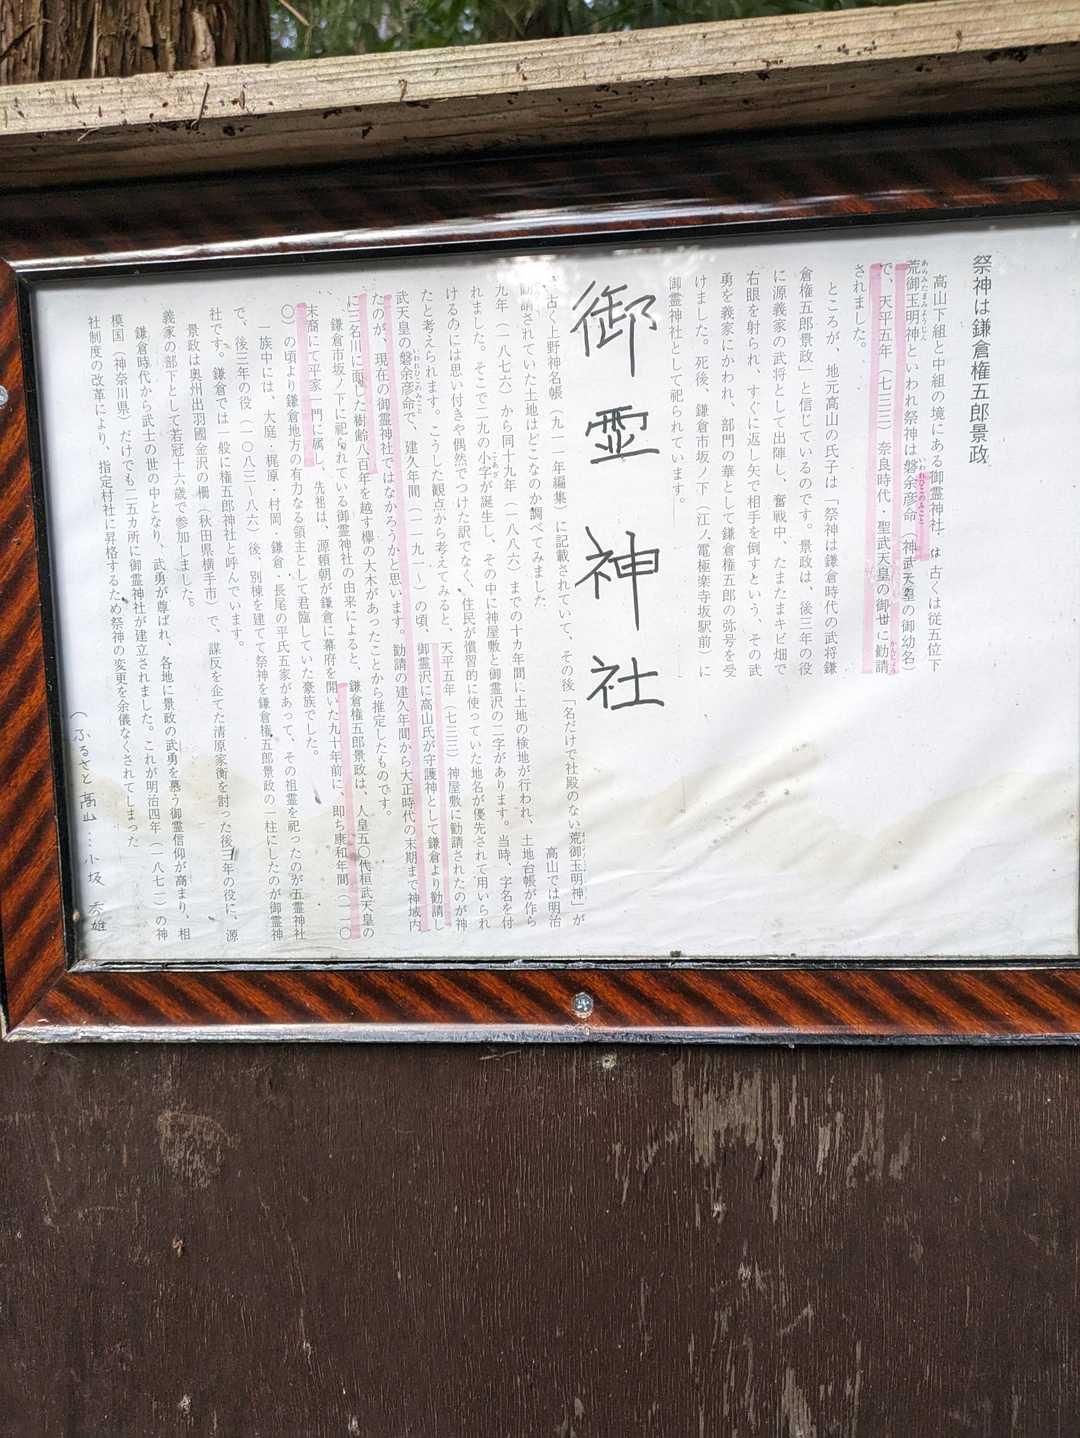 祭神は鎌倉権五郎景政
高山下組と中組の境にある御霊神社は古くは従五位下
荒御玉明神といわれ祭神は磐余彦命（神武天皇の御幼名）
で、天平五年（七三三）奈良時代・聖武天皇の御世に勧請
されました。
ところが、地元高山の氏子は「祭神は鎌倉時代の武将鎌
倉権五郎景政」と信じているのです。景政は、後三年の役
に源義家の武将として出陣し、奮戦中、たまたまキビ畑で
右眼を射られ、すぐに返し矢で相手を倒すという、その武
勇を義家にかわれ、部門の華として鎌倉権五郎の弥号を受
けました。死後、鎌倉市坂ノ下（江ノ電極楽寺坂駅前）に
御霊神社として祀られています。
御霊神社
古く上野神名帳（九一一年編集）に記載されていて、その後「名だけで社殿のない荒御玉明神」が
勧請されていた土地はどこなのか調べてみました。高山では明治
九年（一八七六）から同十九年（一八八六）までの十カ年間に土地の検地が行われ、土地台帳が作ら
れました。そこで二九の小字が誕生し、その中に神屋敷と御霊沢の二字があります。当時、字名を付
けるのには思い付きや偶然でつけた訳でなく、住民が慣習的に使っていた地名が優先されて用いられ
たと考えられます。こうした観点から考えてみると、天平五年（七三三）神屋敷に勧請されたのが神
武天皇の磐余彦命で、建久年間（一一九一〜）の頃、御霊沢に高山氏が守護神として鎌倉より勧請し
たのが、現在の御霊神社ではなかろうかと思います。勧請の建久年間から大正時代の末期まで神域内
に三名川に面した樹齢八百年を越す欅の大木があったことから推定したものです。
鎌倉市坂ノ下に祀られている御霊神社の由来によると、鎌倉権五郎景政は、人皇五〇代桓武天皇の
末裔にて平家一門に属し、先祖は、源頼朝が鎌倉に幕府を開いた九十年前に、即ち康和年間（一一〇
〇）の頃より鎌倉地方の有力なる領主として君臨していた豪族でした。
一族中には、大庭・梶原 村岡・鎌倉・長尾の平氏五家があって、その祖霊を祀ったのが五霊神社
で、後三年の役（一〇八三〜八六）後、別棟を建てて祭神を鎌倉権五郎景政の一柱にしたのが御霊神
社です。鎌倉では一般に権五郎神社と呼んでいます。
景政は奥州出羽國金沢の柵（秋田県横手市）で、謀反を企てた清原家衡を討った後三年の役に、源
義家の部下として若冠十六歳で参加しました。
鎌倉時代から武士の世の中となり、武勇が尊ばれ、各地に景政の武勇を慕う御霊信仰が高まり、相
模国（神奈川県）だけでも二五カ所に御霊神社が建立されました。これが明治四年（一八七一）の神
社制度の改革により、指定村社に昇格するため祭神の変更を余儀なくされてしまった
（ふるさと高山…小坂 雄